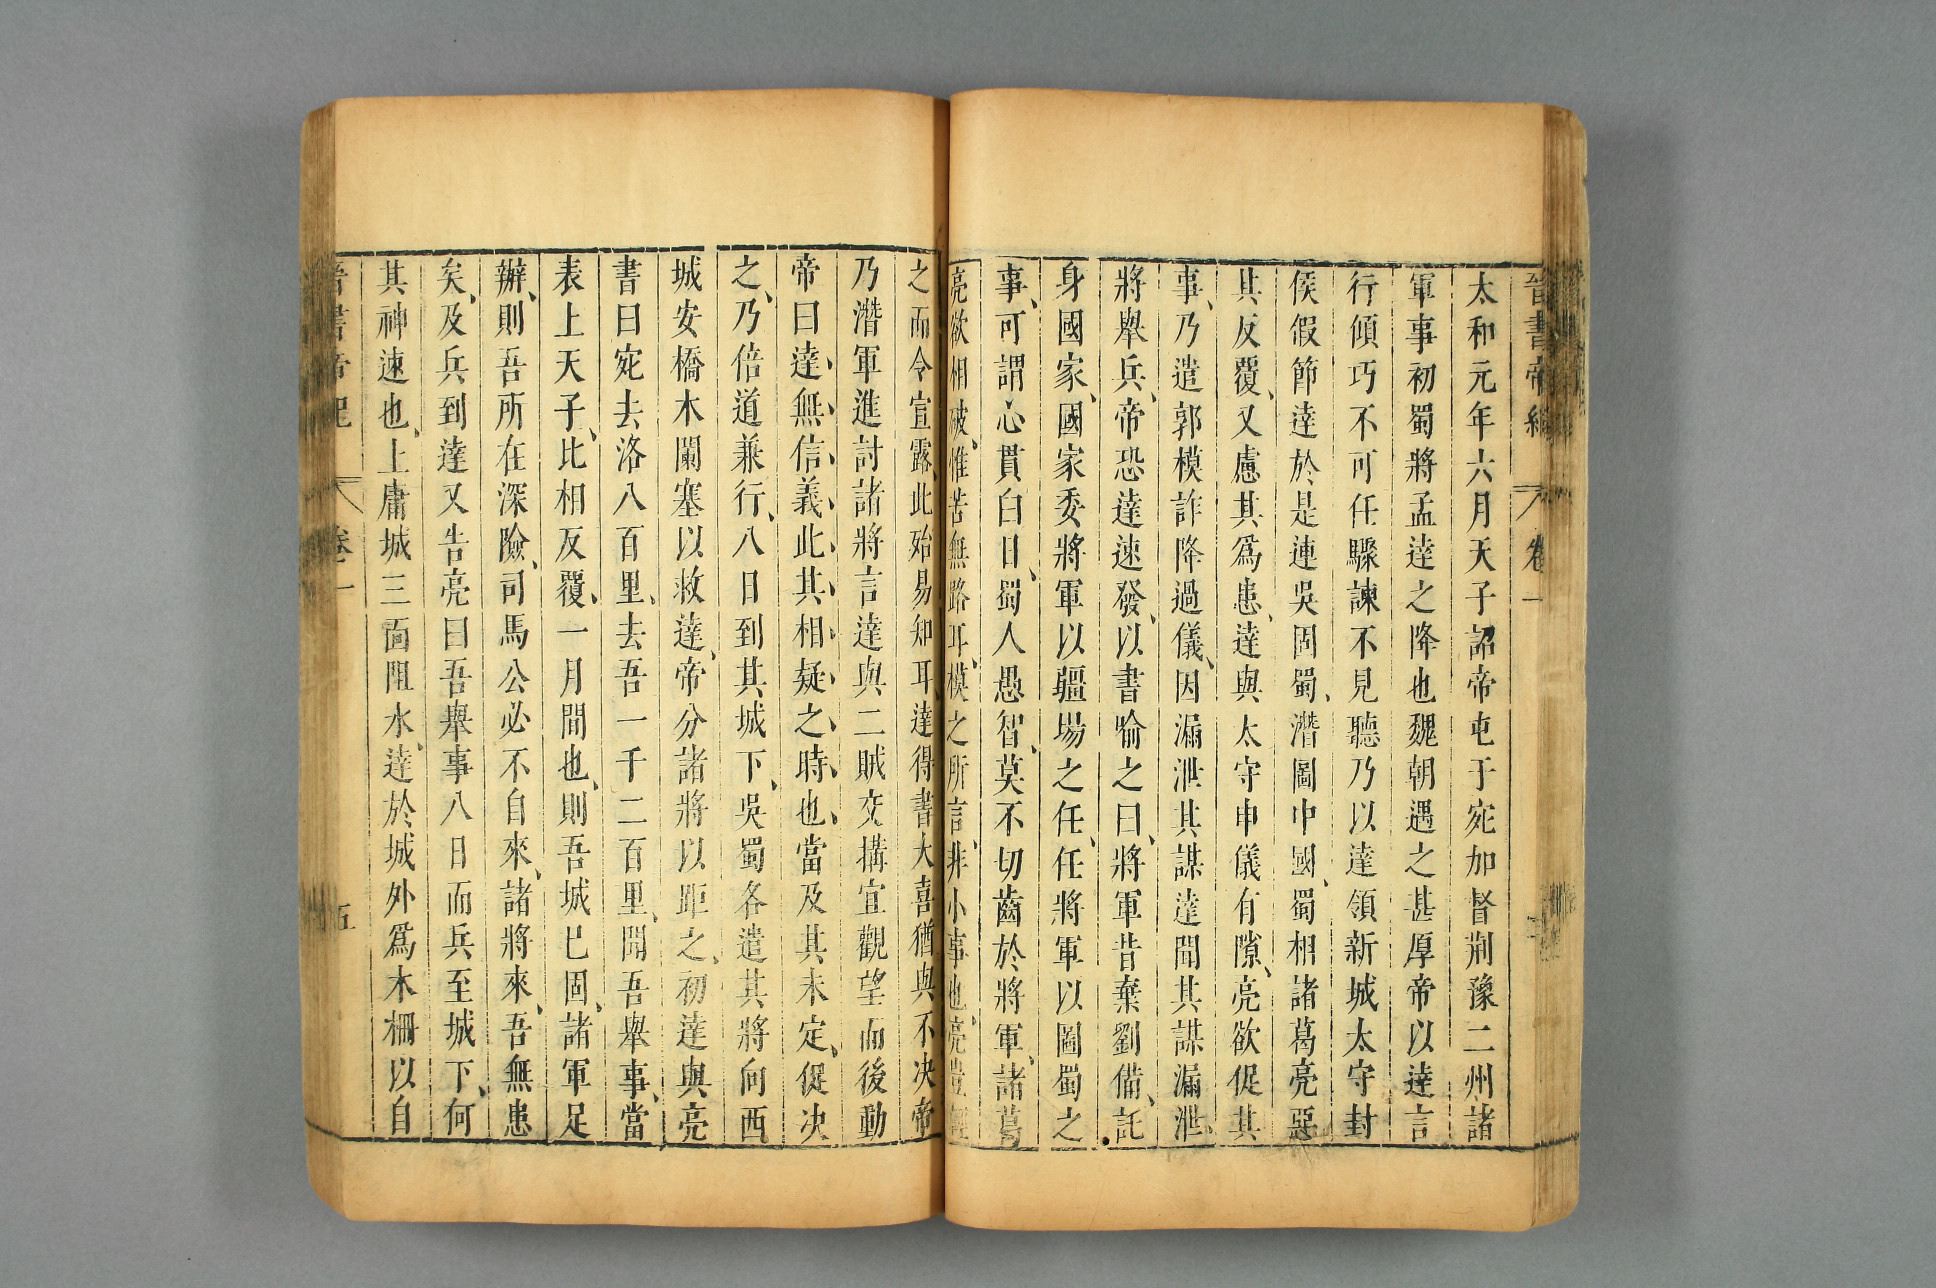 晉書帝紀 卷一
太和元年六月天子詔帝屯于宛加督荊豫二州諸
軍事初蜀將孟達之降也魏朝遇之甚厚帝以達言
行傾巧不可任驟諫不見聽乃以達領新城太守封
侯假節達於是連吳固蜀、潛圖中國、蜀相諸葛亮惡
其反覆、又慮其爲患、達與太守申儀有隙、亮欲促其
事、乃遣郭模詐降過儀、因漏泄其謀達聞其謀漏泄
將舉兵、帝恐達速發、以書喻之曰、將軍昔棄劉備、託
身國家、國家委將軍以疆場之任、任將軍以圖蜀之
事、可謂心貫白日、蜀人愚智、莫不切齒於將軍、諸葛
亮欲相破、惟苦無路耳、模之所言、非小事也、亮豈輕
之而令宣露、此殆易知耳、達得書大喜猶與不決帝
乃潛軍進討諸將言達與二賊交搆宜觀望而後動
帝曰、達、無、信、義、此、其、相、疑、之、時、也、當及其未定、促決
之、乃倍道兼行、八日到其城下、吳蜀各遣其將向西
城安橋木闌塞以救達、帝分諸將以距之、初達與亮
書曰宛去洛八百里、去吾一千二百里、聞吾舉事、當
表上天子、比相反覆、一月間也、則吾城已固、諸軍足
辦、則吾所在深險、司馬公必不自來、諸將來、吾無患
矣、及兵到達又告亮曰吾舉事八日而兵至城下、何
其神速也、上庸城三面阻水、達於城外爲木柵以自
晉書帝紀 卷一 五